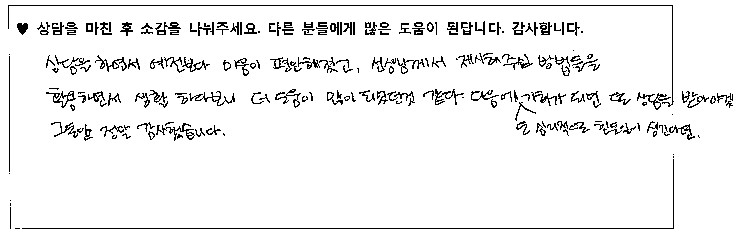 ♥ 상담을 마친 후 소감을 나눠주세요. 다른 분들에게 많은 도움이 된답니다. 감사합니다.
상담을 하면서 예전보다 마음이 편안해졌고, 선생님께서 제시해주신 방법들을
활용하면서 생활 하다보니 더 도움이 많이 되었던것 같다. 다음에 기회가 되면 또 상담을 받아야겠
또 심리적으로 힘든일이 생긴다면,
그동안 정말 감사했습니다.